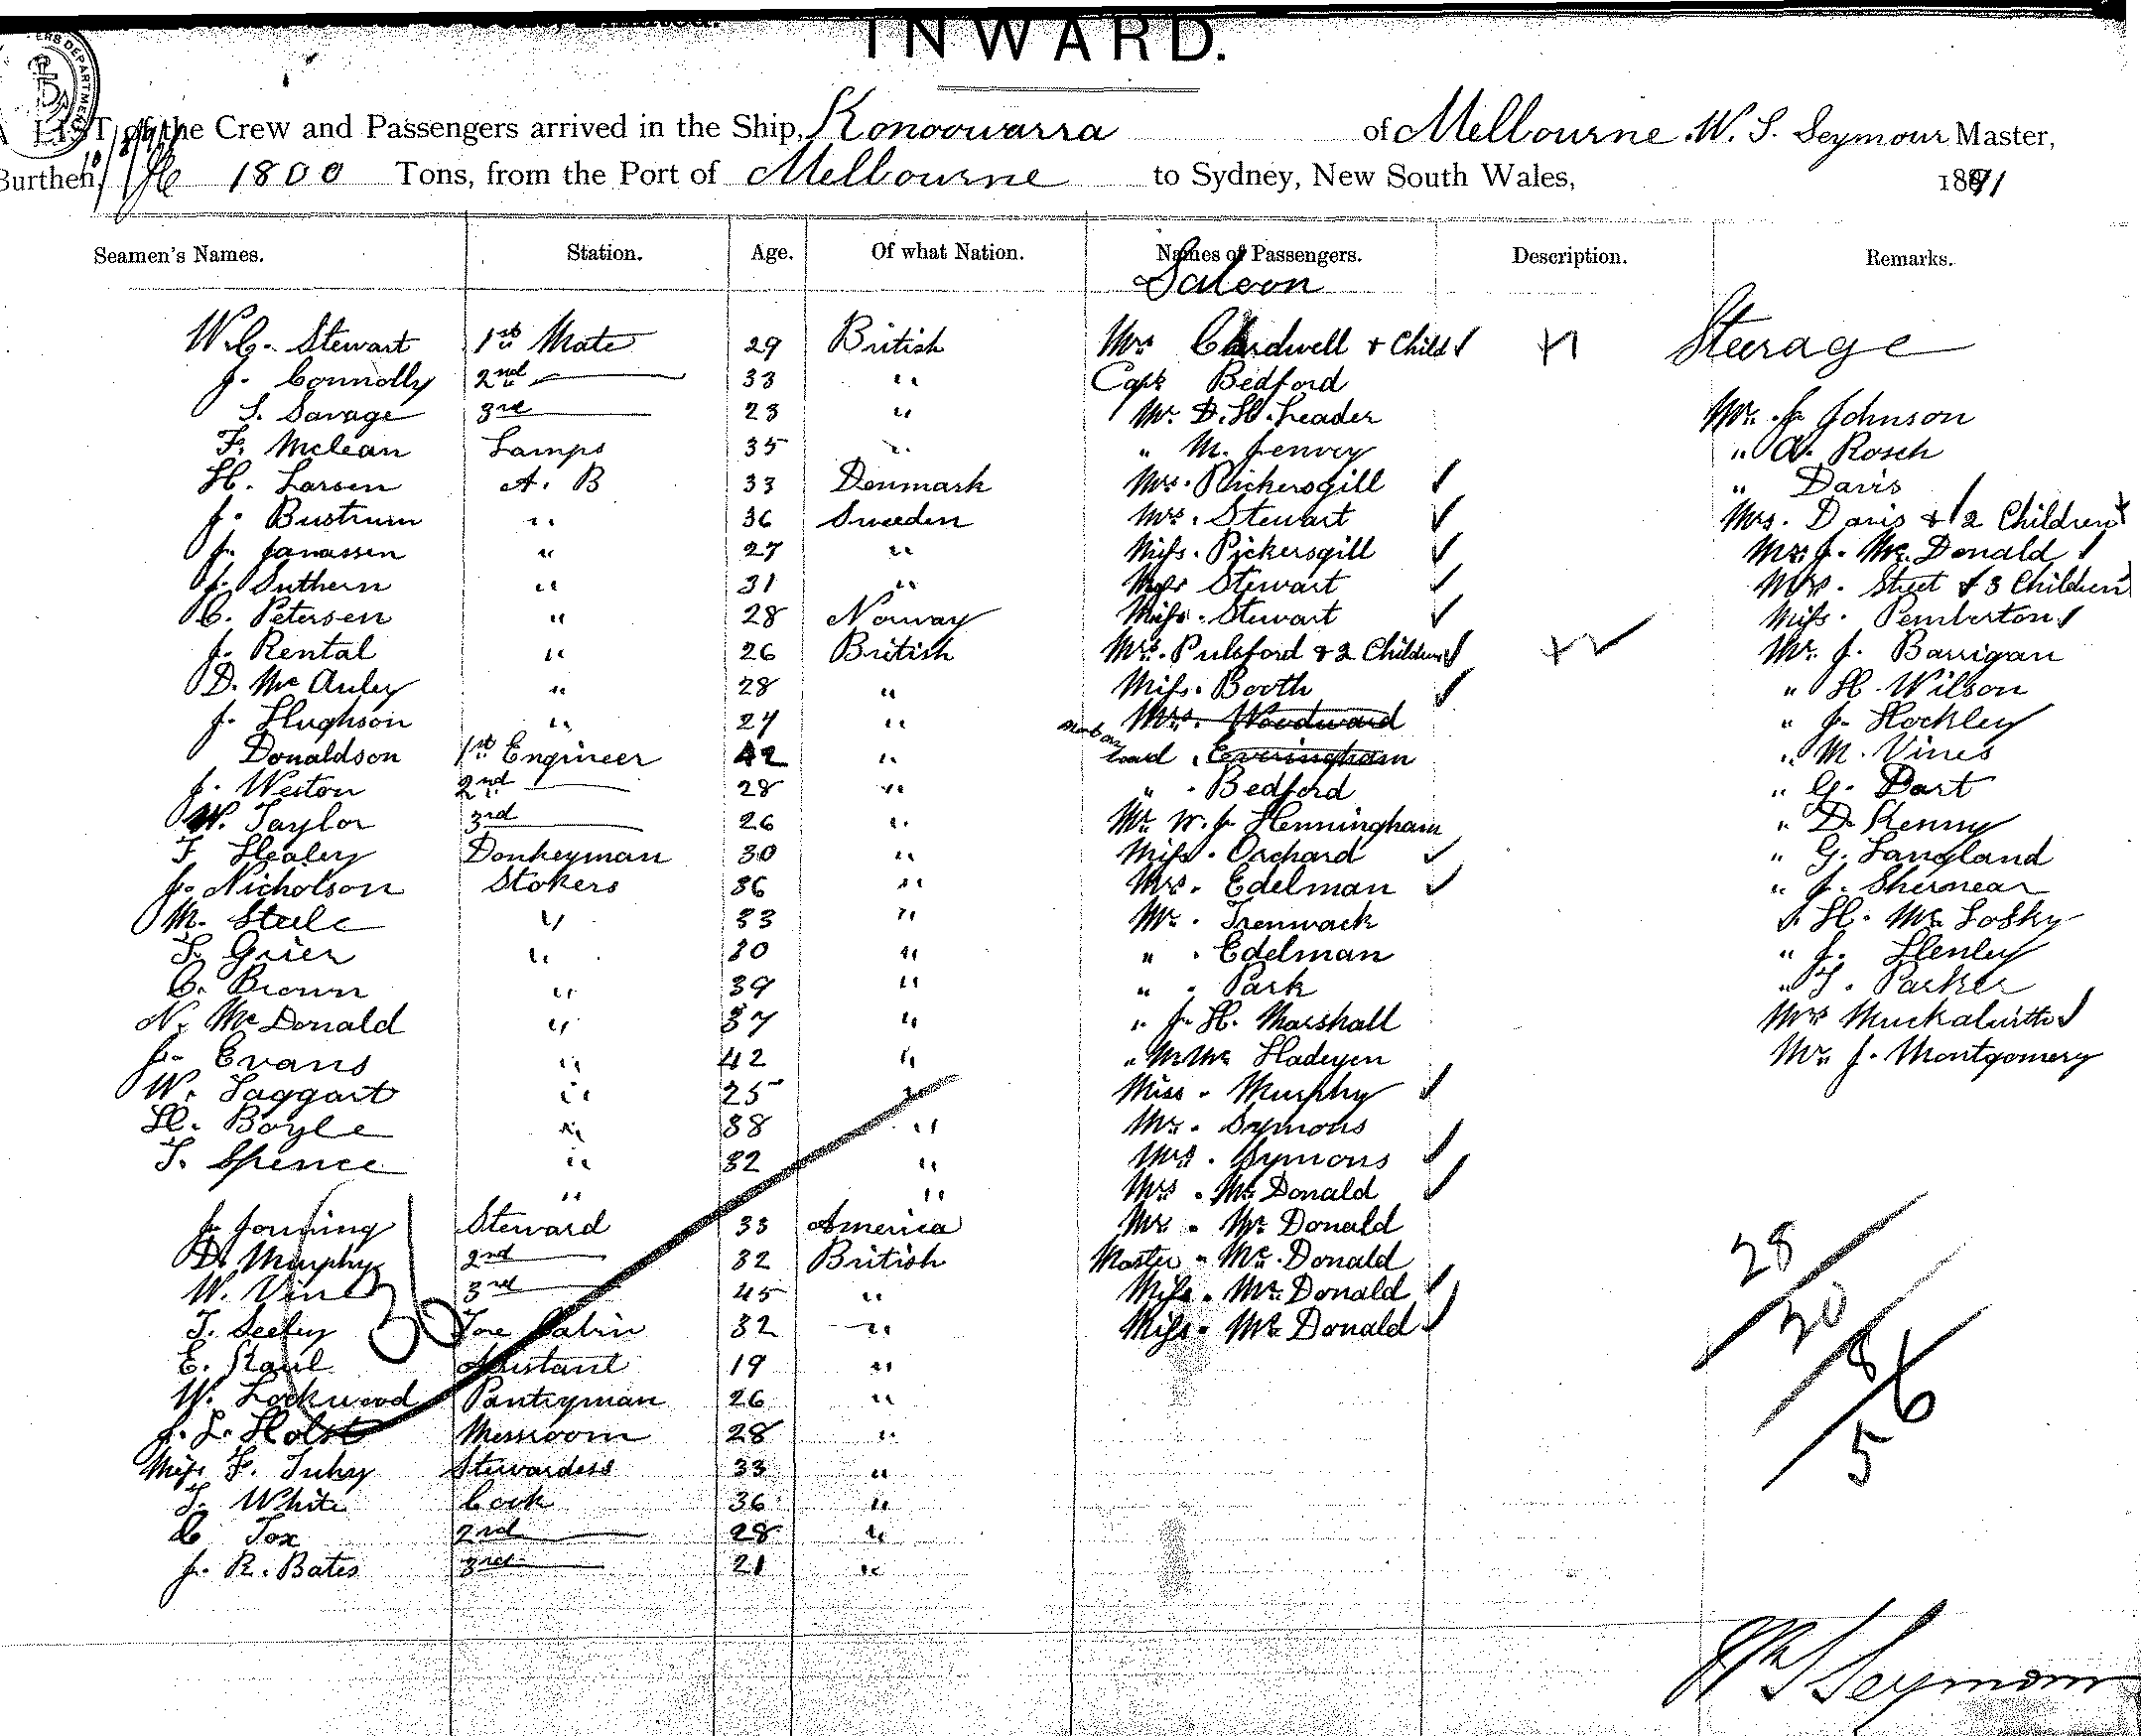 INWARD.
A LIST of the Crew and Passengers arrived in the Ship, Konoowarra of Melbourne. W. S. Seymour Master,
Burthen, 1800 Tons, from the Port of Melbourne to Sydney, New South Wales, 1891
Seamen's Names. Station. Age. Of what Nation. Names of Passengers. Description. Remarks.
Saloon
W. C. Stewart 1st Mate 29 British Mrs Chardwell + Child Steerage
J. Connolly 2nd 33 " Capt Bedford
S. Savage 3rd 23 " Mr. D. H. Leader Mr. J. Johnson
F. Mclean Lamps 35 " " M. Jenvey " A. Rosch
H. Larsen A. B 33 Denmark Mrs. Pickersgill " Davis
J. Bustrum " 36 Sweeden Mrs. Stewart Mrs. Davis & 2 Children
J. Janassen " 27 " Miss. Pickersgill Mrs. J. Mc. Donald
J. Suthern " 31 " Miss Stewart Mrs. Street & 3 Children
C. Petersen " 28 Norway Miss. Stewart Miss. Pemberton
J. Rental " 26 British Mrs. Pulsford & 2 Children Mr. J. Barrigan
D. Mc Auley " 28 " Miss. Booth " H. Wilson
J. Hughson " 24 " Mrs. Woodward " J. Hockley
Donaldson 1st Engineer 42 " not on board . Everingham " M. Vines
J. Weston 2nd 28 " " . Bedford " G. Dart
W. Taylor 3rd 26 " Mr. W. J. Henningham " D. Kenny
F. Healey Donkeyman 30 " Miss. Orchard " G. Langland
J. Nicholson Stokers 36 " Mrs. Edelman " J. Shernear
M. Steele " 33 " Mr. Trenwack " H. Mc Losky
T. Grier " 30 " " . Edelman " J. Henley
C. Brown " 39 " " . Park " T. Parker
N. Mc Donald " 37 " " J. H. Marshall Mrs Muckalwitte
J. Evans " 42 " " Hadeyen Mr. J. Montgomery
W. Taggart " 25 " Miss. Murphy
H. Boyle " 38 " Mr. Symons
T. Spence " 32 " Mrs. Symons
" " Mrs. Mc Donald
J. Jonning Steward 33 America Mr. Mc Donald
D. Murphy 2nd 32 British Master " Mc. Donald
W. Vine 3rd 45 " Miss. Mc Donald
T. Seeley Fore Cabin 32 " Miss. Mc Donald
E. Kaul Assistant 19 "
W. Lockwood Pantryman 26 "
J. L. Holst Messroom 28 "
Miss F. Tuhy Stewardess 33 "
T. White Cook 36 "
C Fox 2nd 28 "
J. R. Bates 3rd 21 "
36
28
20
8
56
W S Seymour